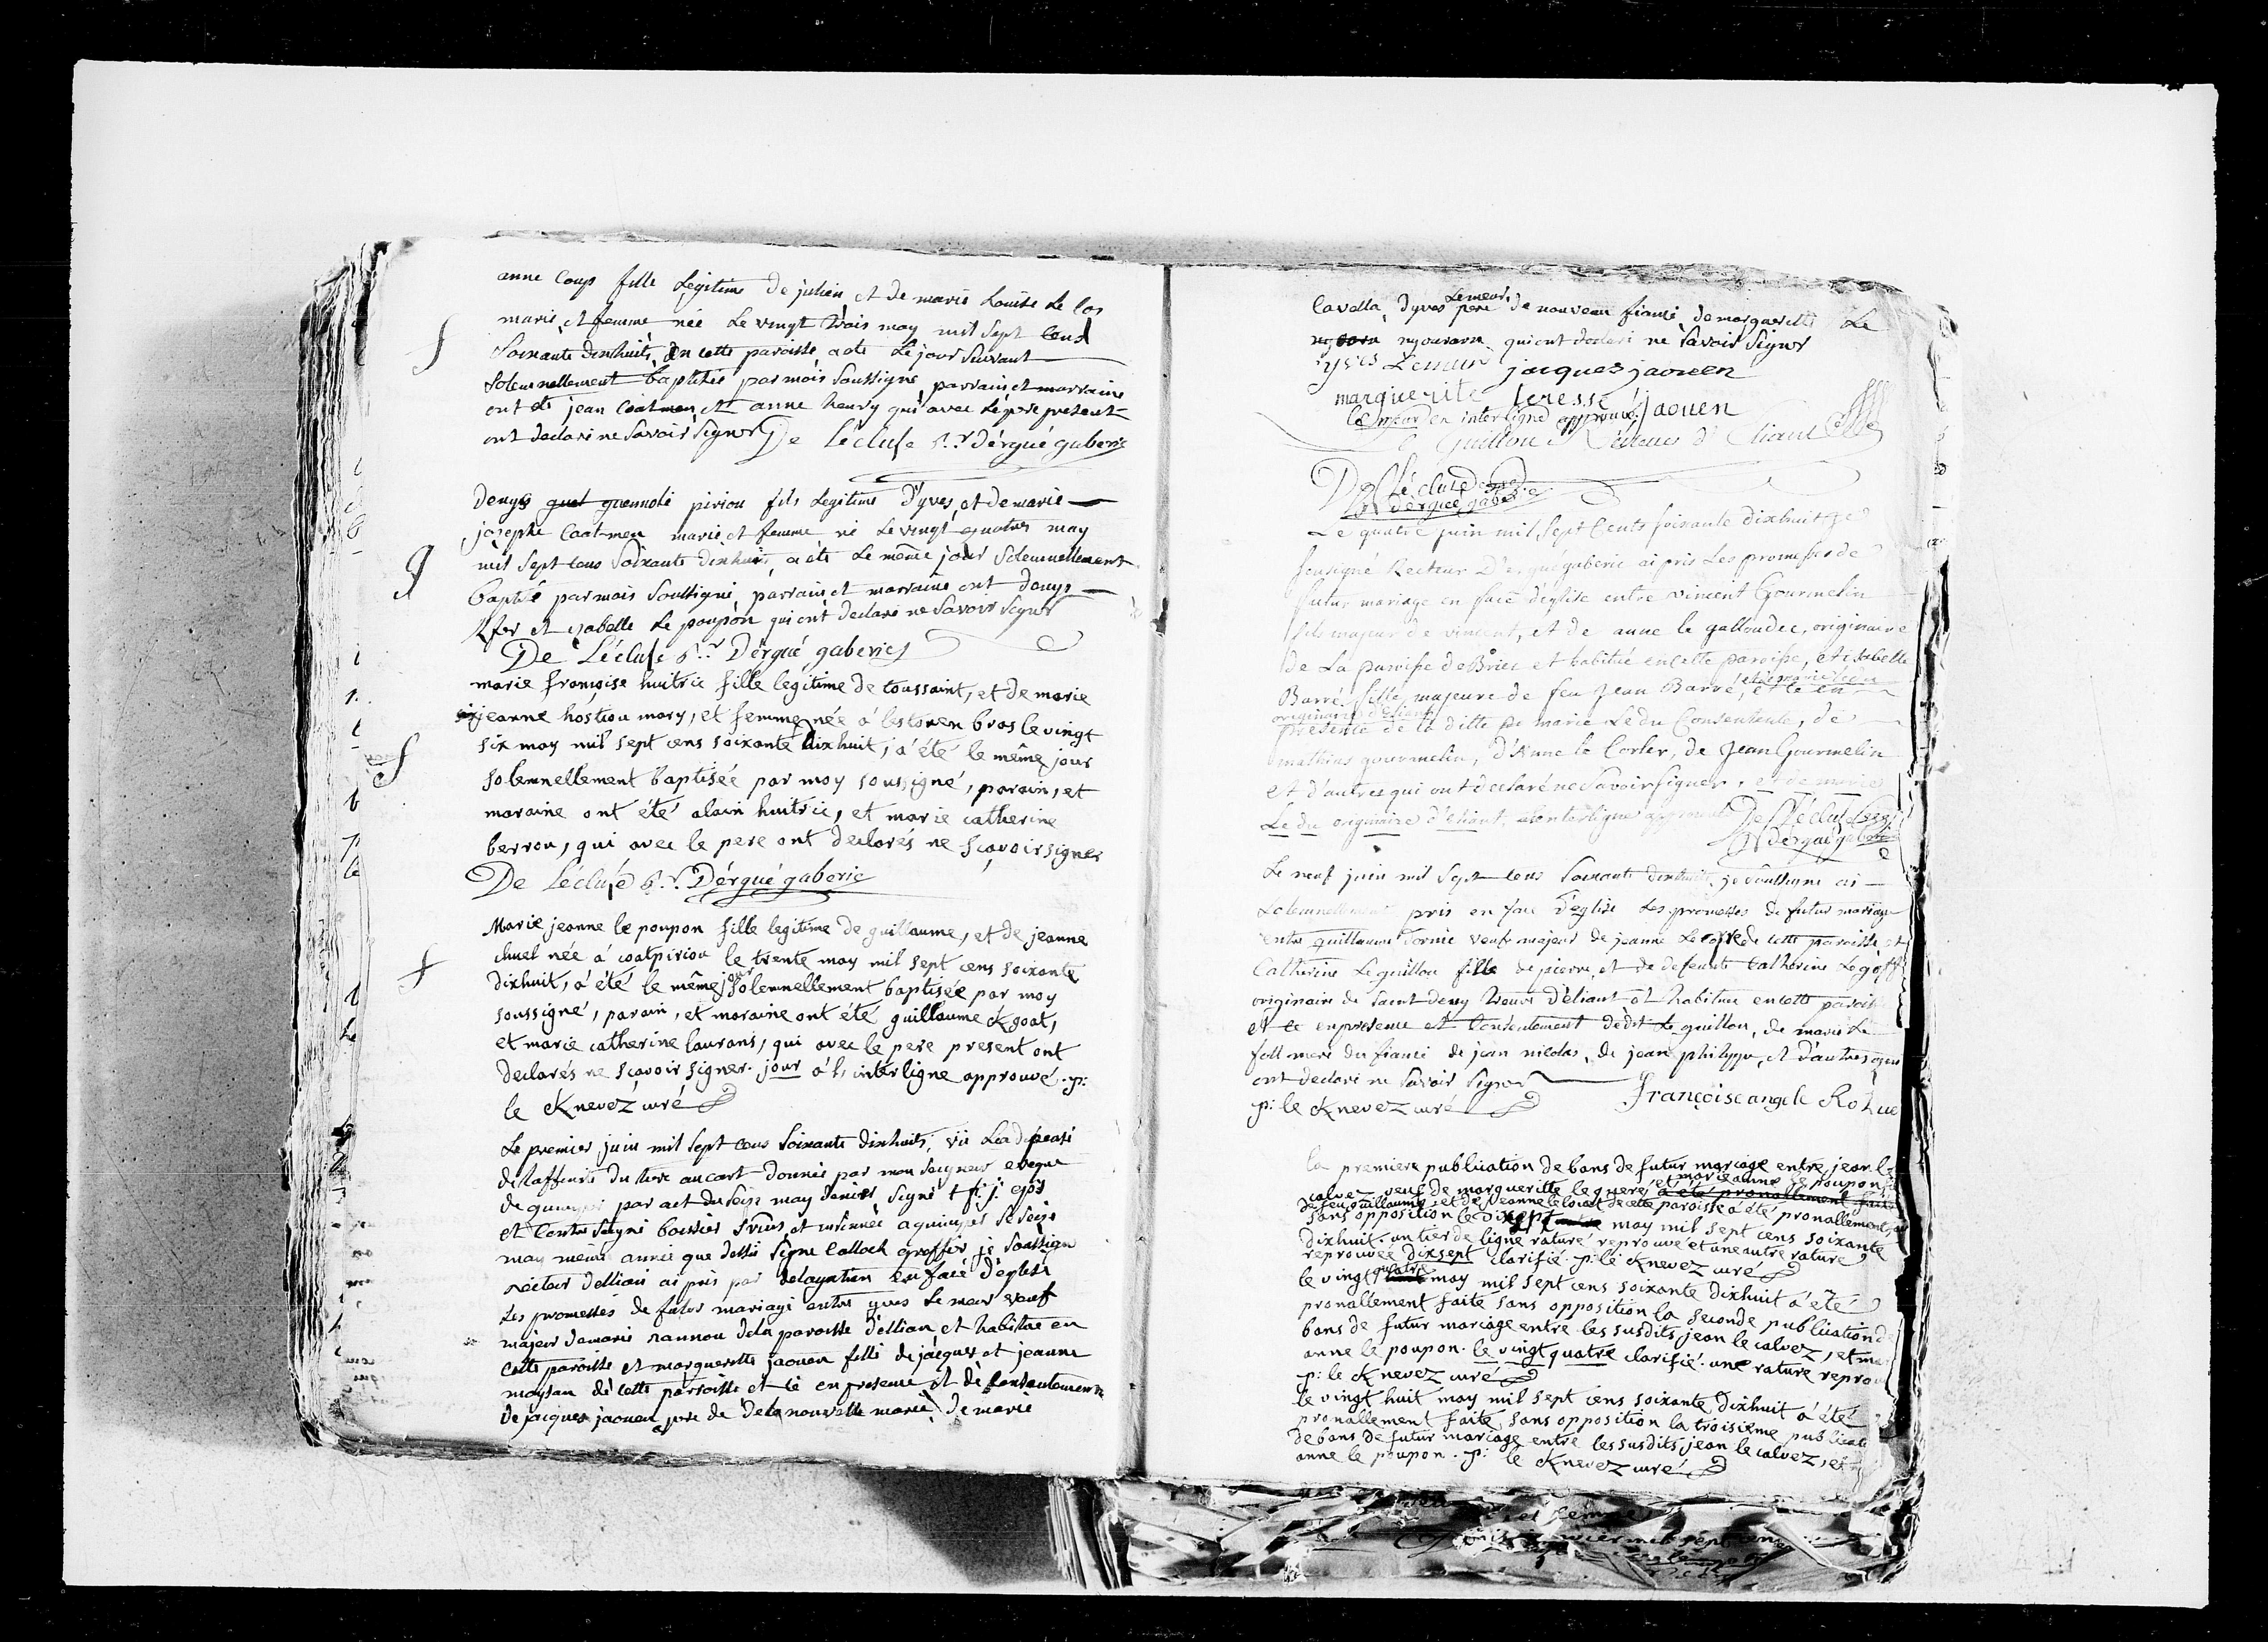 anne Coup fille Légitime de julien et de marie Louise Le Cos
marie et femme née Le vingt trois may mil sept Cens
Soixante dixhuit, En cette paroisse a été Le jour suivant
Solemnellement baptisée par mois Soussigné, parrain et marraine
ont été jean Coatmen et anne henry qui avec Le père présent
ont declaré ne Savoir Signer De Lécluse r.r dérgué gaberic
denys guenolé piriou fils Legitime D'yves, et de marie
josephe Coatmen marié et femme né Le vingt quatre may
mil Sept Cens Soixante dixhuit, a été Le même jour Solemnellement
baptisé par mois Soussigné, parrain et marraine ont denys
et ysabelle Le poupon qui ont declaré ne Savoir Signer
De Lécluse r.r Dérgué gaberic
marie françoise huitric fille legitime de toussaint, et de marie
jeanne hostiou mary, et femme née à lestonen bras le vingt
six may mil sept cens soixante dixhuit, a été le même jour
solemnellement baptisée par moy soussigné, parain, et
maraine ont été alain huitric, et marie catherine
berrou, qui avec le pere ont declarés ne sçavoir signer
De Lécluse r.r Dérgué gaberic
Marie jeanne le poupon fille legitime de guillaume, et de jeanne
huel née à coatpiriou le trente may mil sept cens soixante
dixhuit, a été le même jour solemnellement baptisée par moy
soussigné, parain, et maraine ont été guillaume Kgoat,
et marie catherine laurans, qui avec le pere present ont
declarés ne sçavoir signer. jour à l'interligne approuvé. p:
le Knevez curé
Le premier juin mil sept cens Soixante dixhuit, vü La dipense
d'affinité du tiers au cart donnée par mon Seigneur eveque
de quimper par act du Seize may dernier Signé
et Contre Signé boissier et insinnée a quimper Le Seize
may meme année que dessus Signé Calloch greffier je Soussigne
recteur d'elliant ai pris par delagation En face d'eglise
Les promesses de futur mariage entre yves Le meur veuf
majeur de marie rannou de la paroisse d'elliant et habitue en
cette paroisse et marguerite jaouen fille de jacques et jeanne
moysan de cette paroisse et ce en presence et de Consentement
de jacques jaouen pere de de la nouvelle mariée, de marie
Cavella, d'yves Le meur pere de nouveau fiancé, de marguerite Le
ny gouarn qui ont declaré ne Savoir Signer
yves Lemeur jacques jaouen
marguerite teresse jaouen
Le meur en interligne approuvé
Guillou Recteur d'Eliant
De Lécluse
dérgué gaberic
Le quatre juin mil sept Cents soixante dixhuit je
sousigné Recteur D'ergué gaberic ai pris Les promesses de
futur mariage en face d'église entre vincent Gourmelin
fils majeur de vincent, et de anne le galloudec, originaire
de La paroisse de Briec et habitué en cette paroisse, et isabelle
Barré fille majeure de feu Jean Barré, et de marie Ledu et ce en
originaire d'Eliant
présence de la ditte marie Ledu Consentente, de
mathias gourmelin, d'Anne le Corler, de Jean Gourmelin
et d'autres qui ont declaré ne Savoir signer, et de marie
Le du originaire d'Eliant en interligne approuvé De Lécluse
r.r dérgué gaberic
Le neuf juin mil Sept Cens Soixante dixhuit, je Soussigne ai
Solemnellement pris en face d'eglise Les promesses de futur mariage
entre guillaume Cornic veuf majeur de jeanne Le de cette paroisse et
Catherine Le guillou fille de pierre, et de defeunte Catherine Le goff
originaire de Saint deny treuve d'éliant et habitue en cette paroisse
et ce en presence et Consentement dédit Le guillou, de marie Le
foll mere du fiancé de jean nicolas, de jean philippe, et d'autres
ont declaré ne Savoir Signer
p: le Knevez curé Françoise angele Rohu
la premiere publication de bans de futur mariage entre jean le
calvez veuf de marguerite le guere, et marie anne le poupon
de feu guillaume, et de jeanne le loiet de cete paroisse a été pronallement
sans opposition le dixsept may mil sept cens soixante
dixhuit. un tier de ligne raturé reprouvé et une autre rature
reprouvée dixsept clarifié. p: le Knevez curé
le vingt quatre may mil sept cens soixante dixhuit a été
pronallement faite sans opposition la seconde publication de
bans de futur mariage entre les susdits jean le calvez, et
anne le poupon. le vingt quatre clarifié. une rature reprou
p: le Knevez curé
le vingt huit may mil sept cens soixante dixhuit a été
pronallement faite sans opposition la troisieme publicat
de bans de futur mariage entre les susdits jean le calvez, et
anne le poupon. p: le Knevez curé